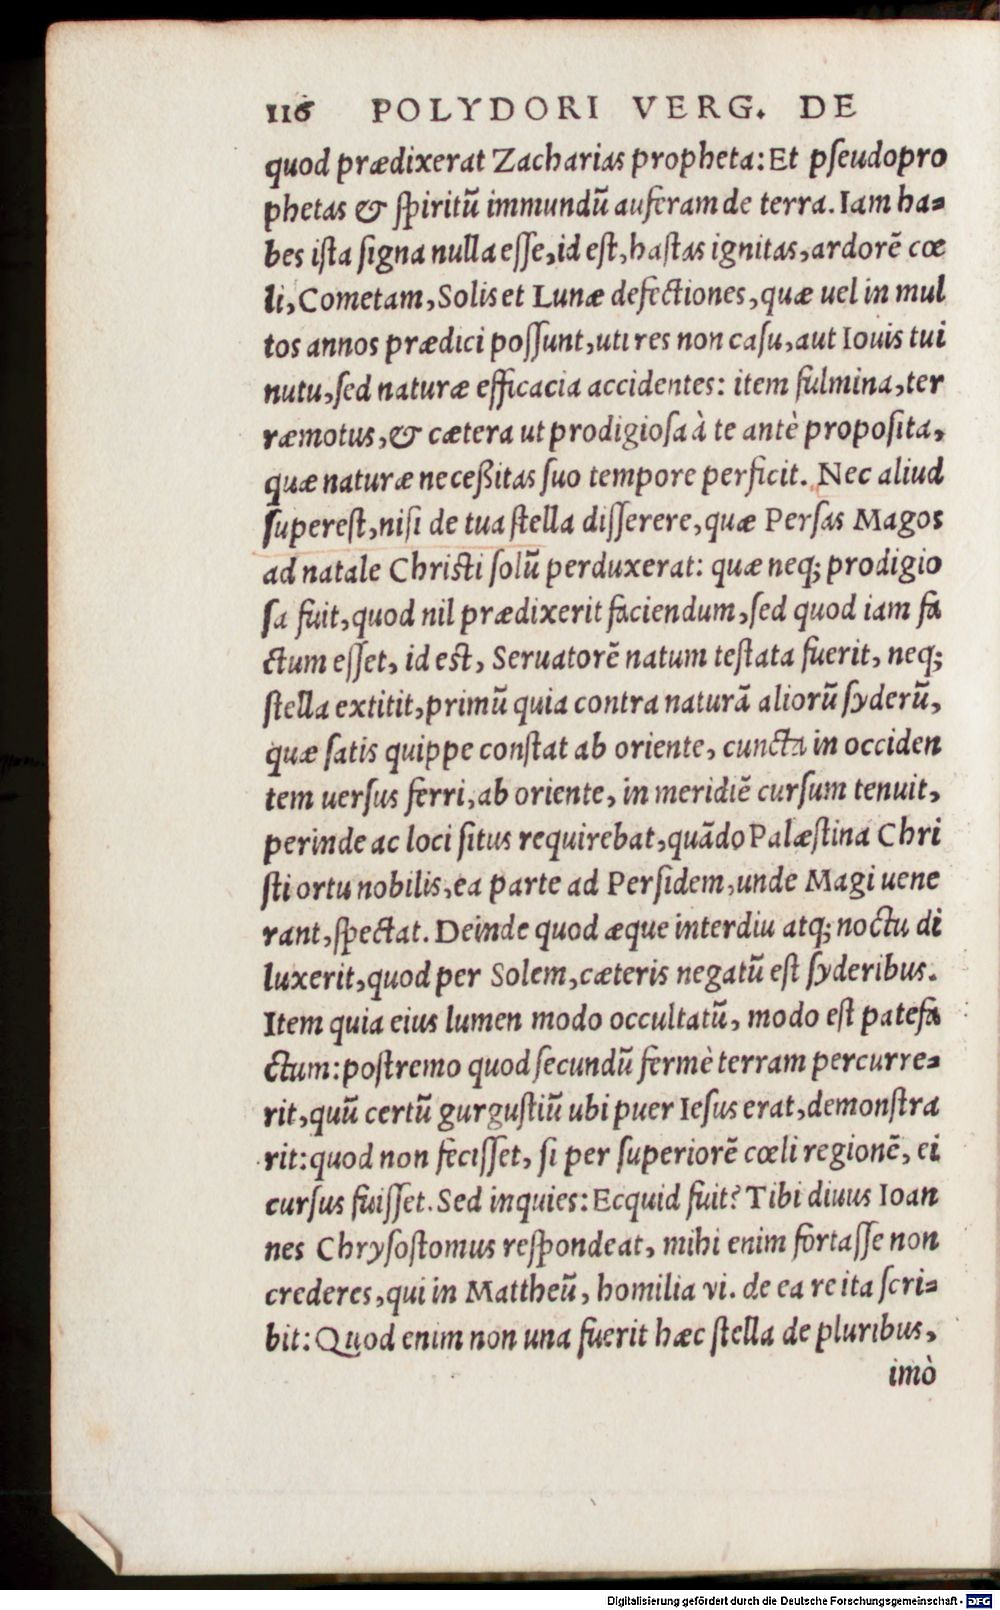 116 POLYDORI VERG. DE
quod prædixerat Zacharias propheta: Et pſeudopro
phetas & ſpiritū immundū auferam de terra. Iam ha-
bes iſta ſigna nulla eſſe, id eſt, haſtas ignitas, ardorē cœ
li, Cometam, Solis et Lunæ defectiones, quæ uel in mul
tos annos prædici poſſunt, uti res non caſu, aut Iouis tui
nutu, ſed naturæ efficacia accidentes: item fulmina, ter
ræmotus, & cætera ut prodigioſa à te antè propoſita,
quæ naturæ neceßitas ſuo tempore perficit. Nec aliud
ſupereſt, niſi de tua ſtella diſſerere, quæ Perſas Magos
ad natale Chriſti ſolū perduxerat: quæ neq; prodigio
ſa fuit, quod nil prædixerit faciendum, ſed quod iam fa
ctum eſſet, id est, Seruatorē natum teſtata fuerit, neq;
ſtella extitit, primū quia contra naturā aliorū ſyderū,
quæ ſatis quippe conſtat ab oriente, cuncta in occiden
tem uerſus ferri, ab oriente, in meridiē curſum tenuit,
perinde ac loci ſitus requirebat, quādo Palæſtina Chri
ſti ortu nobilis, ea parte ad Perſidem, unde Magi uene
rant, ſpectat. Deinde quod æque interdiu atq; noctu di
luxerit, quod per Solem, cæteris negatū eſt ſyderibus.
Item quia eius lumen modo occultatū, modo eſt patefa
ctum: poſtremo quod ſecundū fermè terram percurre-
rit, quū certū gurguſtiū ubi puer Ieſus erat, demonſtra
rit: quod non feciſſet, ſi per ſuperiorē cœli regionē, ei
curſus fuiſſet. Sed inquies: Ecquid fuit? Tibi diuus Ioan
nes Chryſoſtomus reſpondeat, mihi enim fortaſſe non
crederes, qui in Mattheū, homilia vi. de ea re ita ſcri-
bit: Quod enim non una fuerit hæc ſtella de pluribus,
imò
Digitalisierung gefördert durch die Deutsche Forschungsgemeinschaft - DFG